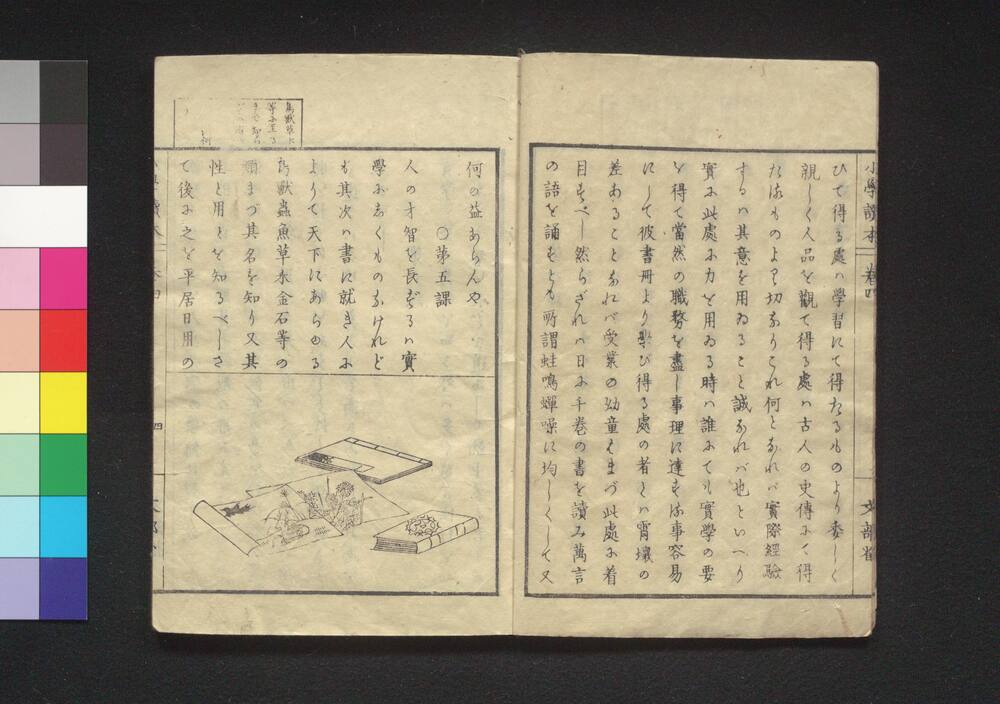 小學讀本 卷四 文部省
ひて得る處ハ學習にて得たるものより委しく
親しく人品を觀て得る處ハ古人の史傳にて得
たるものより切なりこれ何となれバ實際經驗
するハ其意を用ゐること誠なれバ也といへり
實に此處に力を用ゐる時ハ誰にても實學の要
を得て當然の職務を盡し事理に達する事容易
にして彼書冊より學び得る處の者とハ霄壤の
差あることなれバ受業の幼童もまづ此處に着
目すべし然らざれハ日に千卷の書を讀み萬言
の語を誦すとも所謂蛙鳴蟬噪に均しくして又
何の益あらんや
〇第五課
人の才智を長ずるハ實
學にしくものなけれど
も其次ハ書に就き人に
よりて天下にあらゆる
鳥獸蟲魚草木金石等の
類まづ其名を知り又其
性と用とを知るべしさ
て後に之を平居日用の
四